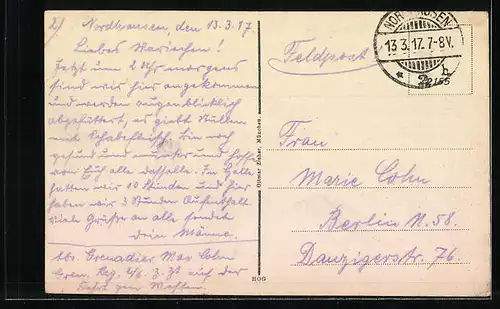 2) Nordhausen, den 13.3.17.
Liebes Mariechen!
Jetzt um 2 Uhr morgens
sind wir hier angekommen
und werden augenblicklich
abgefüttert, es giebt Stullen
mit Schabefleisch. Bin noch
gesund und munter und hoffe
von Euch alle dasselbe. In Halle
hatten wir 10 Stunden und hier
haben wir 3 Stunden Aufenthalt
viele Grüße an alle sendet
dein Männe.
Abs. Grenadier Max Cohn
Gren. Reg. 4/6. z. Zt. auf der
Fahrt gen Westen.
Ottmar Zieher, München.
BOG
Feldpost
NORDHAUSEN
13.3.17.7-8V.
* 2 b
22155
Frau
Marie Cohn
Berlin N. 58.
Danzigerstr. 76.